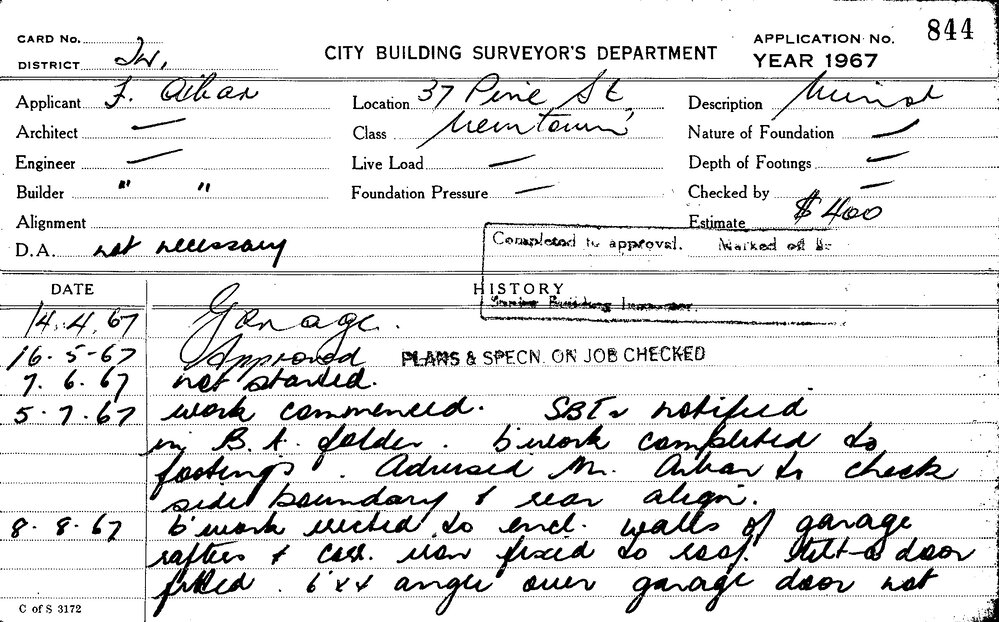 844
CARD No.
DISTRICT
CITY BUILDING SURVEYOR'S DEPARTMENT
APPLICATION No.
YEAR 1967
Applicant F. Aiban
Location 37 Pine St,
Description
Architect —
Class Newtown
Nature of Foundation —
Engineer —
Live Load —
Depth of Footings —
Builder " "
Foundation Pressure —
Checked by —
Alignment
Estimate $400
D.A. not necessary
Completed to approval. Marked off
DATE
HISTORY
Building Inspector
14.4.67 Garage.
16-5-67 Approved PLANS & SPECN. ON JOB CHECKED
7.6.67 not started.
5-7.67 work commenced. notified
in B.A. folder. b'work completed to
footings. Advised Mr. Aiban to check
side boundary & rear align.
8-8-67 b'work erected to encl. walls of garage
rafters & corr. iron fixed to roof. Tilt-a-door
fitted. 6"x4 angle over garage door not
C of S 3172